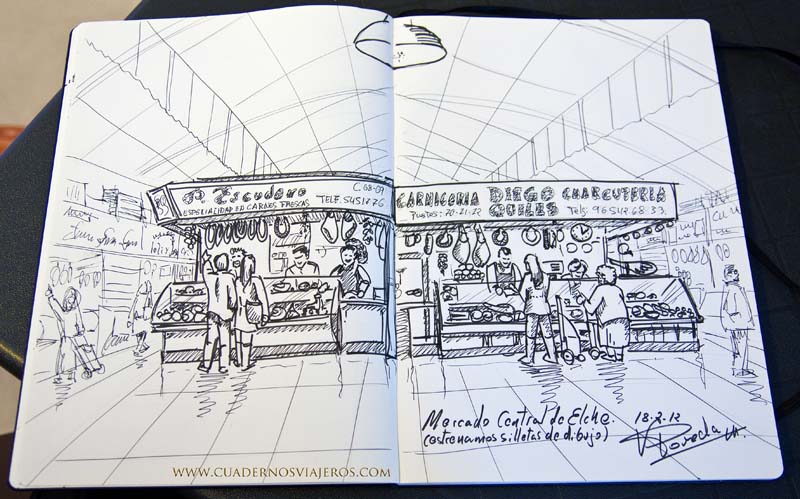 Fº Escudero
C. 08-09
ESPECIALIDAD EN CARNES FRESCAS
TELF. 5451776
CARNICERIA DIEGO CHARCUTERIA
Puestos: 20-21-22 QUILES Telf: 965426833
Mercado Central de Elche. 18-2-12
(estrenamos silletas de dibujo)
Poveda
WWW.CUADERNOSVIAJEROS.COM